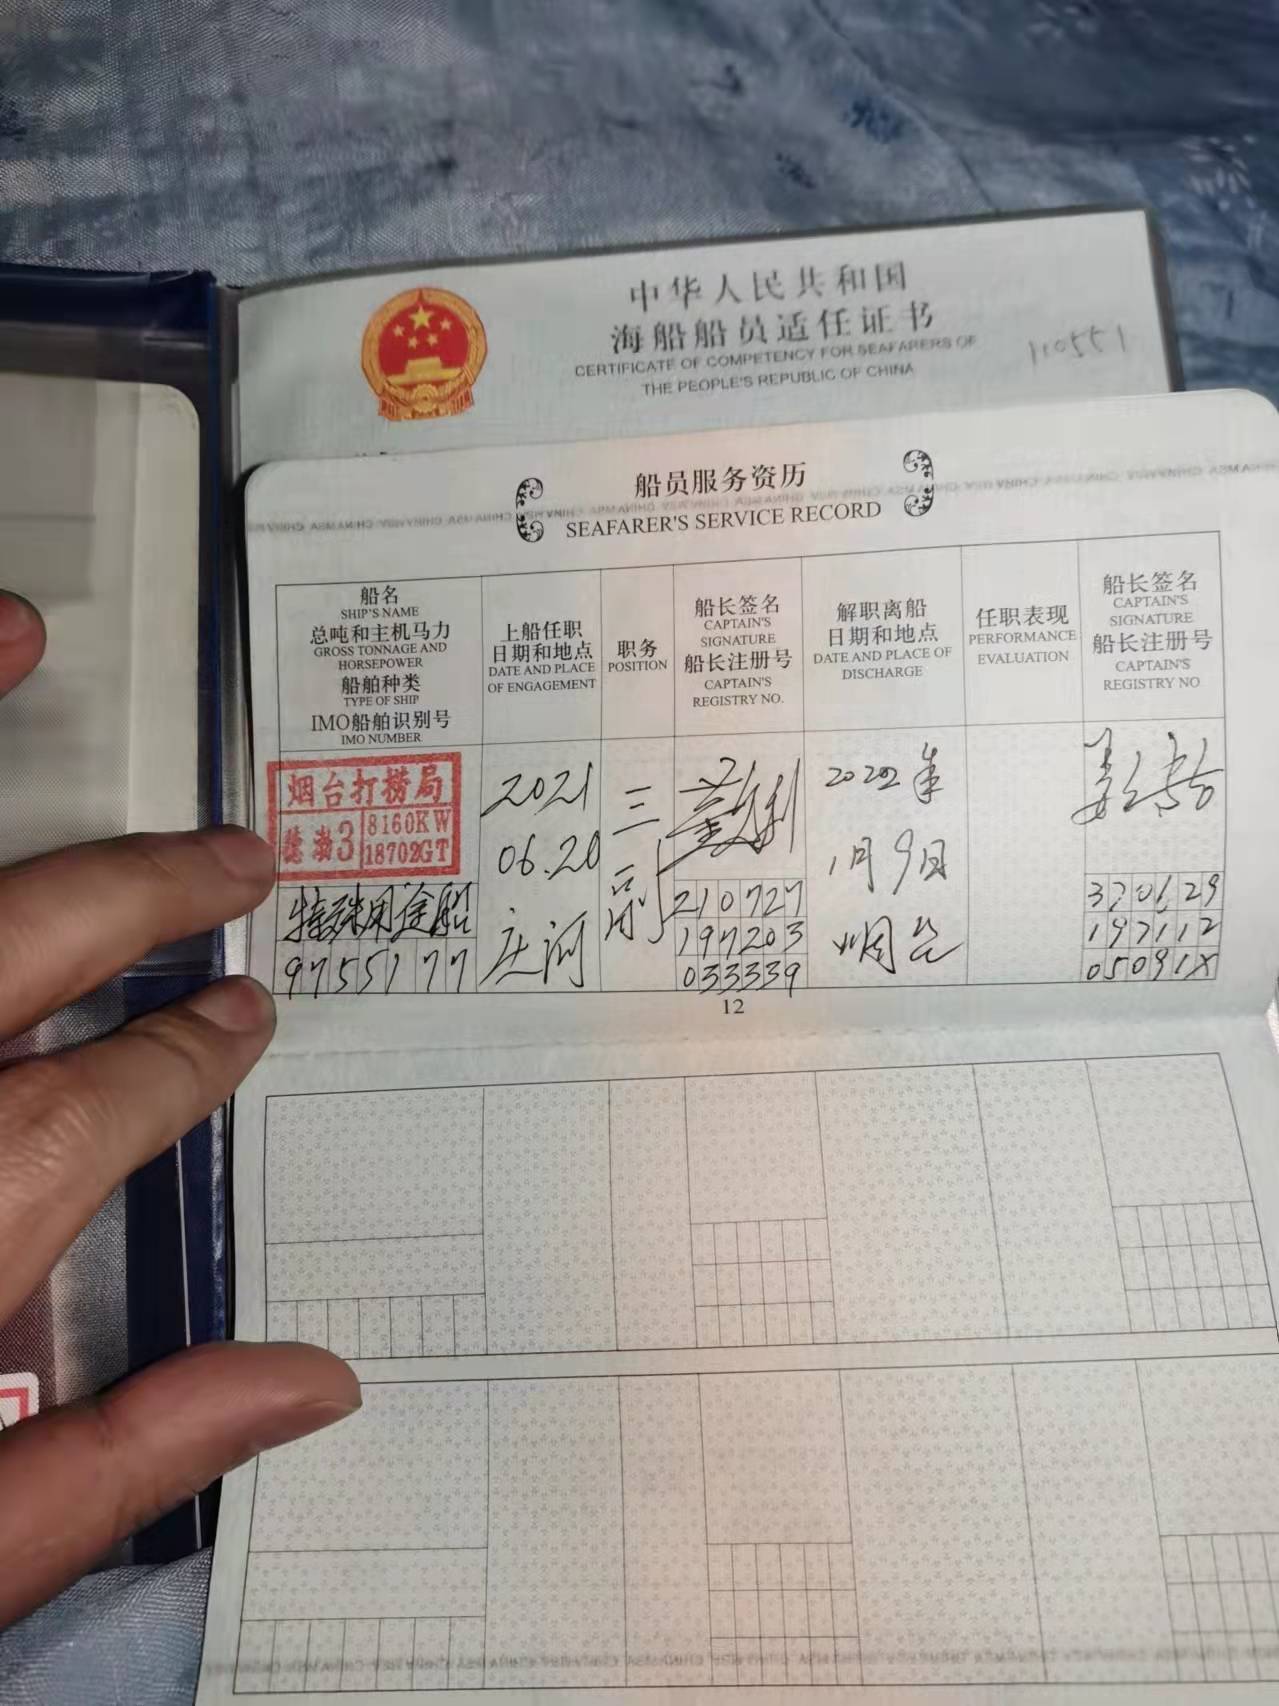 中华人民共和国
海船船员适任证书
CERTIFICATE OF COMPETENCY FOR SEAFARERS OF
THE PEOPLE'S REPUBLIC OF CHINA
110551
船员服务资历
SEAFARER'S SERVICE RECORD
船名
SHIP'S NAME
总吨和主机马力
GROSS TONNAGE AND
HORSEPOWER
船舶种类
TYPE OF SHIP
IMO船舶识别号
IMO NUMBER
上船任职
日期和地点
DATE AND PLACE
OF ENGAGEMENT
职务
POSITION
船长签名
CAPTAIN'S
SIGNATURE
船长注册号
CAPTAIN'S
REGISTRY NO.
解职离船
日期和地点
DATE AND PLACE OF
DISCHARGE
任职表现
PERFORMANCE
EVALUATION
船长签名
CAPTAIN'S
SIGNATURE
船长注册号
CAPTAIN'S
REGISTRY NO
烟台打捞局
德渤3
8160KW
18702GT
特殊用途船
9755177
2021
06.20
庄河
三
副
210727
197203
033339
2022年
1月9日
烟台
370629
197112
05091X
12